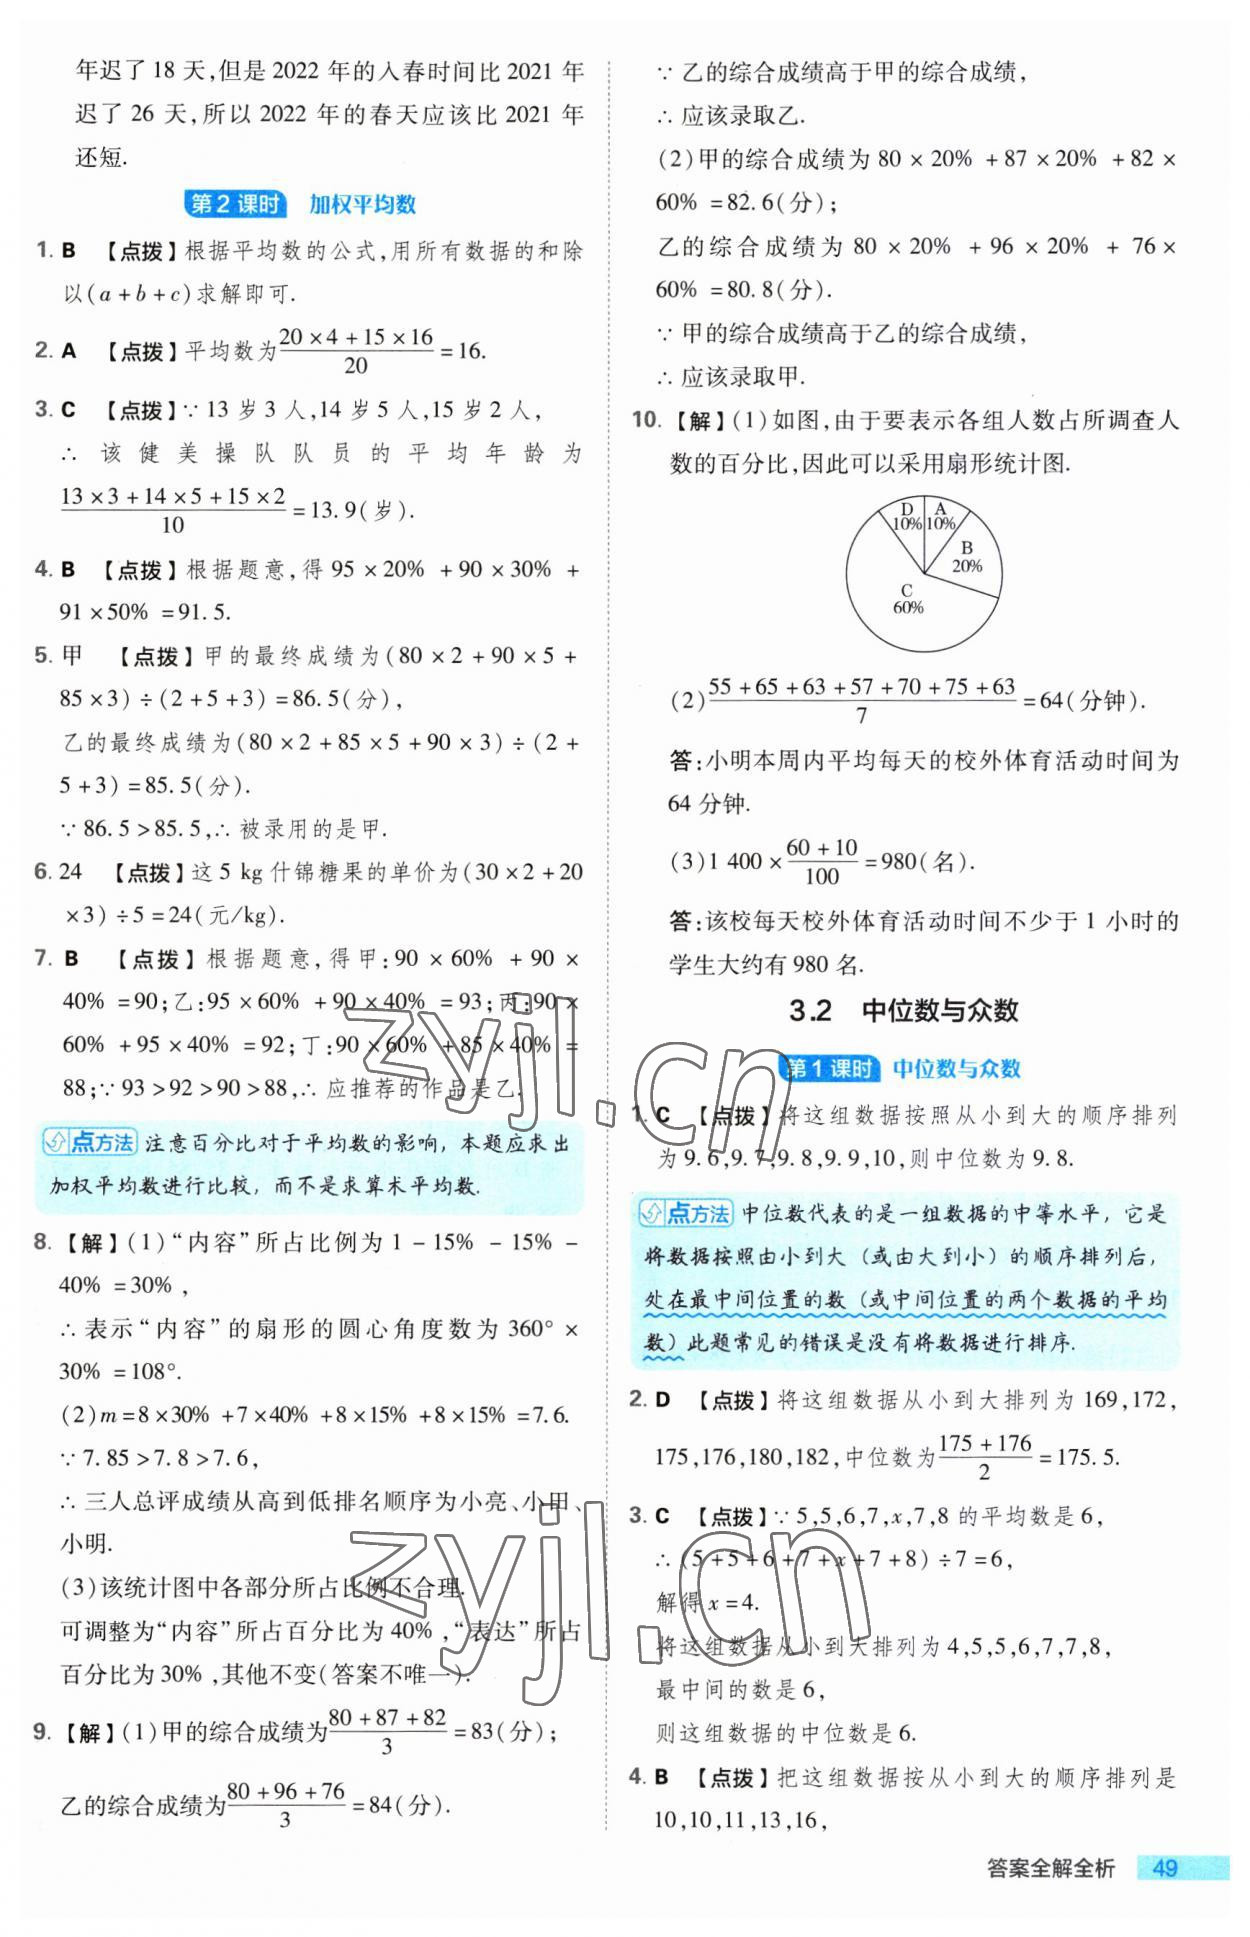 年迟了 18 天,但是 2022 年的入春时间比 2021 年
迟了 26 天,所以 2022 年的春天应该比 2021 年
还短.
第 2 课时 加权平均数
1. B 【点拨】根据平均数的公式,用所有数据的和除
以(a+b+c)求解即可.
2. A 【点拨】平均数为(20×4+15×16)/20=16.
3. C 【点拨】∵13 岁 3 人,14 岁 5 人,15 岁 2 人,
∴ 该健美操队队员的平均年龄为
(13×3+14×5+15×2)/10=13.9(岁).
4. B 【点拨】根据题意,得 95×20% +90×30% +
91×50% =91.5.
5. 甲 【点拨】甲的最终成绩为(80×2+90×5+
85×3)÷(2+5+3)=86.5(分),
乙的最终成绩为(80×2+85×5+90×3)÷(2+
5+3)=85.5(分).
∵86.5>85.5,∴ 被录用的是甲.
6. 24 【点拨】这 5 kg 什锦糖果的单价为(30×2+20
×3)÷5=24(元/kg).
7. B 【点拨】根据题意,得甲:90×60% +90×
40% =90;乙:95×60% +90×40% =93;丙:90×
60% +95×40% =92;丁:90×60% +85×40% =
88;∵93>92>90>88,∴ 应推荐的作品是乙.
点方法 注意百分比对于平均数的影响,本题应求出
加权平均数进行比较,而不是求算术平均数.
8. 【解】(1)“内容”所占比例为 1-15% -15% -
40% =30%,
∴ 表示“内容”的扇形的圆心角度数为 360°×
30% =108°.
(2)m=8×30% +7×40% +8×15% +8×15% =7.6.
∵7.85>7.8>7.6,
∴ 三人总评成绩从高到低排名顺序为小亮、小田、
小明.
(3)该统计图中各部分所占比例不合理.
可调整为“内容”所占百分比为 40%,“表达”所占
百分比为 30%,其他不变(答案不唯一).
9. 【解】(1)甲的综合成绩为(80+87+82)/3=83(分);
乙的综合成绩为(80+96+76)/3=84(分).
∵ 乙的综合成绩高于甲的综合成绩,
∴ 应该录取乙.
(2)甲的综合成绩为 80×20% +87×20% +82×
60% =82.6(分);
乙的综合成绩为 80×20% +96×20% +76×
60% =80.8(分).
∵ 甲的综合成绩高于乙的综合成绩,
∴ 应该录取甲.
10. 【解】(1)如图,由于要表示各组人数占所调查人
数的百分比,因此可以采用扇形统计图.
D 10%
A 10%
B 20%
C 60%
(2)(55+65+63+57+70+75+63)/7=64(分钟).
答:小明本周内平均每天的校外体育活动时间为
64 分钟.
(3)1 400×(60+10)/100=980(名).
答:该校每天校外体育活动时间不少于 1 小时的
学生大约有 980 名.
3.2 中位数与众数
第 1 课时 中位数与众数
1. C 【点拨】将这组数据按照从小到大的顺序排列
为 9.6,9.7,9.8,9.9,10,则中位数为 9.8.
点方法 中位数代表的是一组数据的中等水平,它是
将数据按照由小到大(或由大到小)的顺序排列后,
处在最中间位置的数(或中间位置的两个数据的平均
数)此题常见的错误是没有将数据进行排序.
2. D 【点拨】将这组数据从小到大排列为 169,172,
175,176,180,182,中位数为(175+176)/2=175.5.
3. C 【点拨】∵5,5,6,7,x,7,8 的平均数是 6,
∴(5+5+6+7+x+7+8)÷7=6,
解得 x=4.
将这组数据从小到大排列为 4,5,5,6,7,7,8,
最中间的数是 6,
则这组数据的中位数是 6.
4. B 【点拨】把这组数据按从小到大的顺序排列是
10,10,11,13,16,
答案全解全析 49
zyjl.cn
zyjl.cn